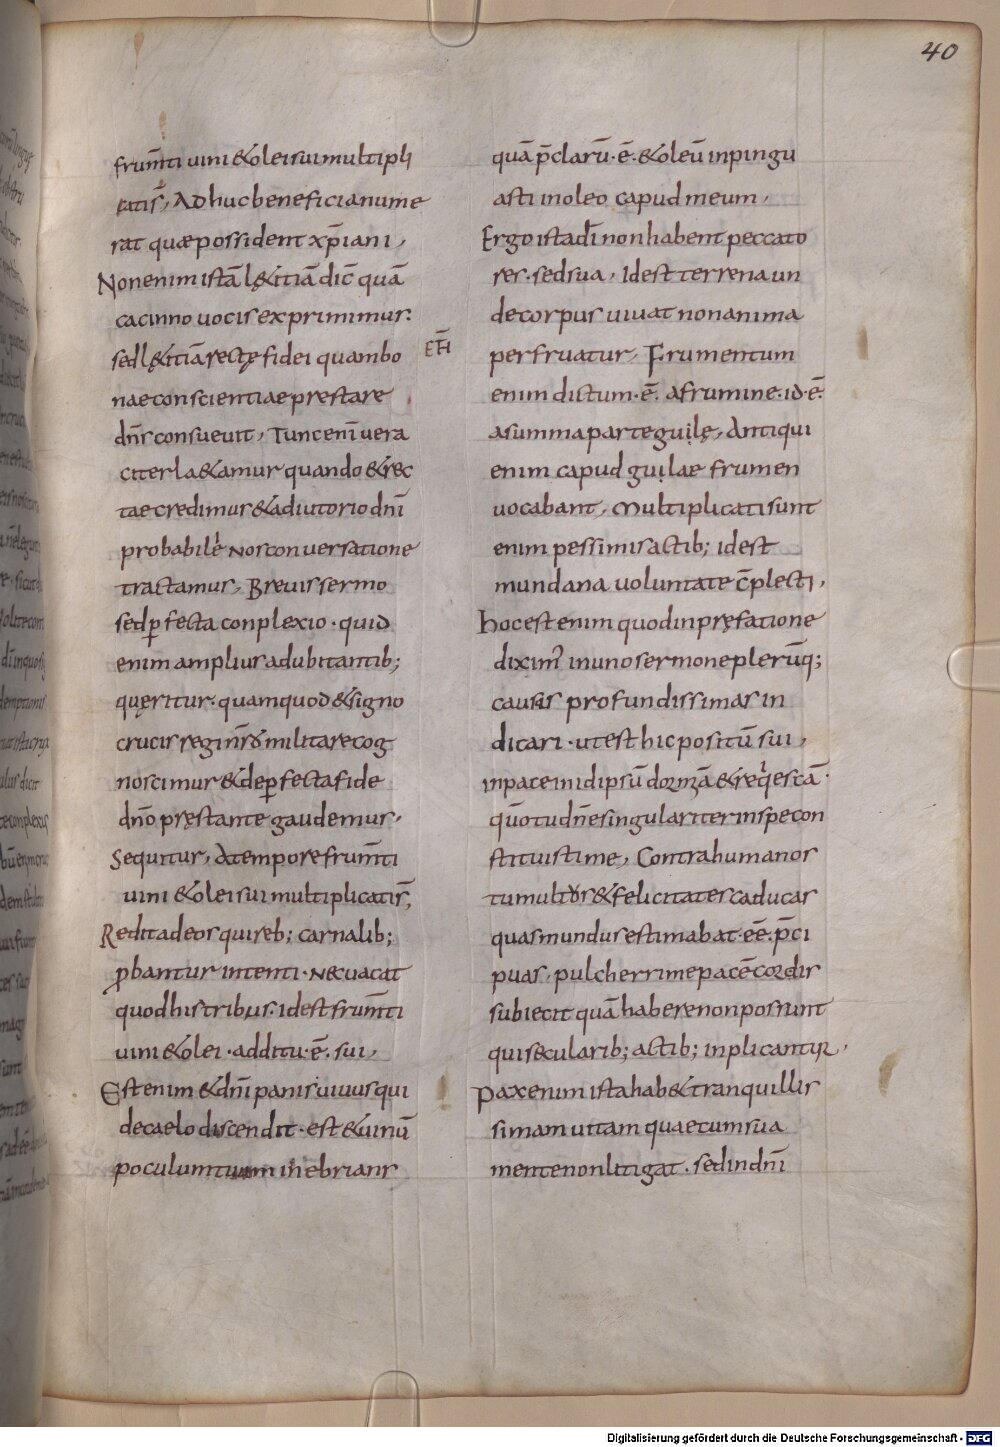 40
frum̄ti uini & olei sui multipli
catis̄, Adhuc beneficia nume
rat quae possident xp̄iani,
Non enim istā l&itiā dic̄ quā
cacinno uocis exprimimur.
sed l&itiā rectę fidei quam bo
nae conscientiae prestare
dn̄s consueuit, Tunc eni̅ uera
citer la&amur quando & rec
tae credimus & adiutorio dn̄i
probabile nos conuersatione
tractamus, Breuis sermo
sed ꝑfecta conplexio · quid
enim amplius adubitantib;
quęritur. quam quod & signo
crucis regi nr̄o militare cog
noscimur & de ꝑfecta fide
dn̄o pręstante gaudemus,
Sequitur, A tempore frum̄ti
uini & olei sui multiplicatis̄,
Redit ad eos qui reb; carnalib;
ꝓbantur intenti · nec uacat
quod his tribus. id est frum̄ti
uini & olei · additū · ē · sui,
Est enim & dn̄i panis uiuus qui
de caelo discendit · est & uinū
poculum tuum inebrians
ETĪ
quā p̄clarū · ē · & oleū inpingu
asti in oleo capud meum,
Ergo ista dī non habent peccato
res · sed sua, Id est terrena un
de corpus uiuat non anima
perfruatur, Frumentum
enim dictum · ē · a frumine. id · ē ·
a summa parte gulę, Antiqui
enim capud gulae frumen
uocabant, Multiplicati sunt
enim pessimis actib; id est
mundana uoluntate c̄plecti,
hoc est enim quod in pręfatione
diximꝰ in uno sermone plerūq;
causas profundissimas in
dicari · ut est hic positū sui,
in pace in id ipsū dormā & reqͥescā ·
qūo tu dn̄e singulariter in spe con
stituisti me, Contra humanos
tumultos & felicitates caducas
quas mundus estimabat · eē · p̄ci
puas, pulcherrime pacē cordis
subiecit quā habere non possunt
qui secularib; actib; inplicantur,
Pax enim ista hab& tranquillis
simam uitam quae cum sua
mente non litigat · sed in dn̄i
Digitalisierung gefördert durch die Deutsche Forschungsgemeinschaft - DFG